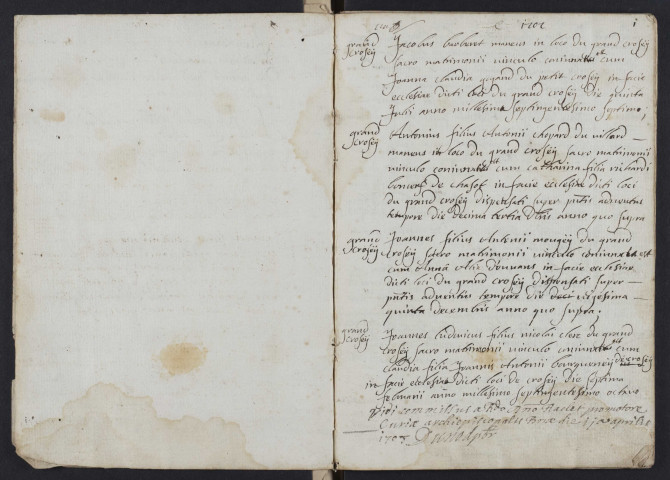 1702 1
grand Jacobus barberet manens in loco du grand crosey
crosey sacro matrimonii vinculo coniunctus est cum
Joanna claudia du petit crosey in facie
ecclesiae dicti loci du grand crosey die quinta
Julii anno millesimo septingentesimo septimo;
grand Antonius filius Antonii chopard du villard
crosey manens in loco du grand crosey sacro matrimonii
vinculo coniunctus est cum catharina filia richardi
de chasot in facie ecclesiae dicti loci
du grand crosey dispensati super adventus
tempore die decima tertia anno quo supra
grand Joannes filius Antonii mougey du grand
crosey crosey sacro matrimonii vinculo coniunctus est
cum Anna in facie ecclesiae
dicti loci du grand crosey dispensati super
adventus tempore die vigesima
quinta decembris anno quo supra;
grand Joannes ludovicus filius nicolai clerc du grand
crosey crosey sacro matrimonii vinculo coniunctus est cum
claudia filia Joannis Antonii de crosey
in facie ecclesiae dicti loci de crosey die septima
anno millesimo septingentesimo octavo
commissus a promotore
Curiae archiepiscopalis die aprilis